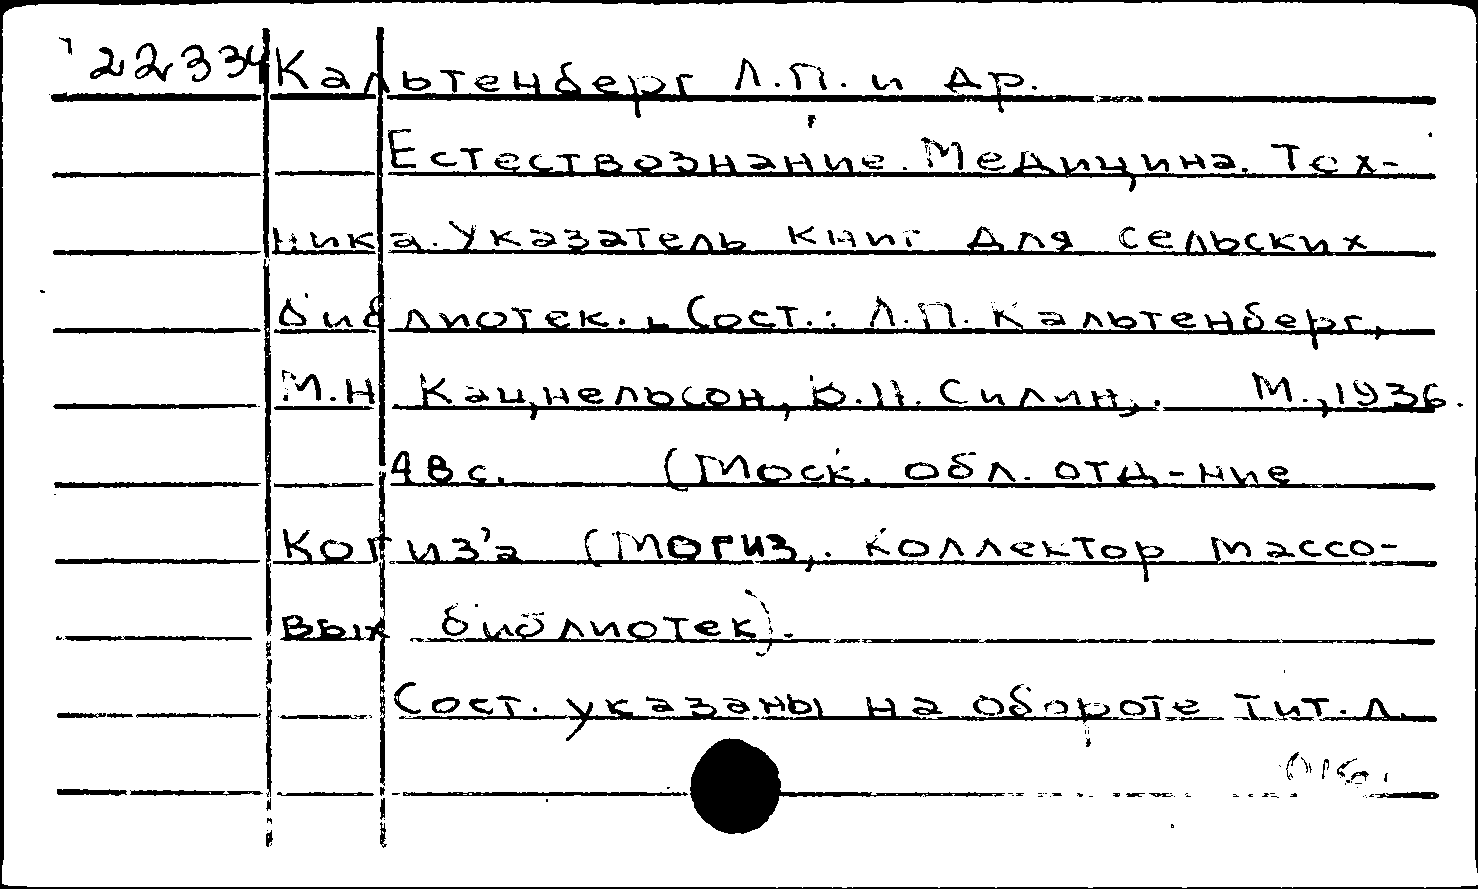 22334 Кальтенберг Л.П. и др.
Естествознание. Медицина. Тех-
ника. Указатель книг для сельских
библиотек. Сост.: Л.П. Кальтенберг,
М.Н. Кацнельсон, Силин,. М.,1936.
48с. (Моск. обл. отд-ние
Когиз'а (Могиз,. коллектор массо-
вых библиотек).
Сост. указаны на обороте тит.л.